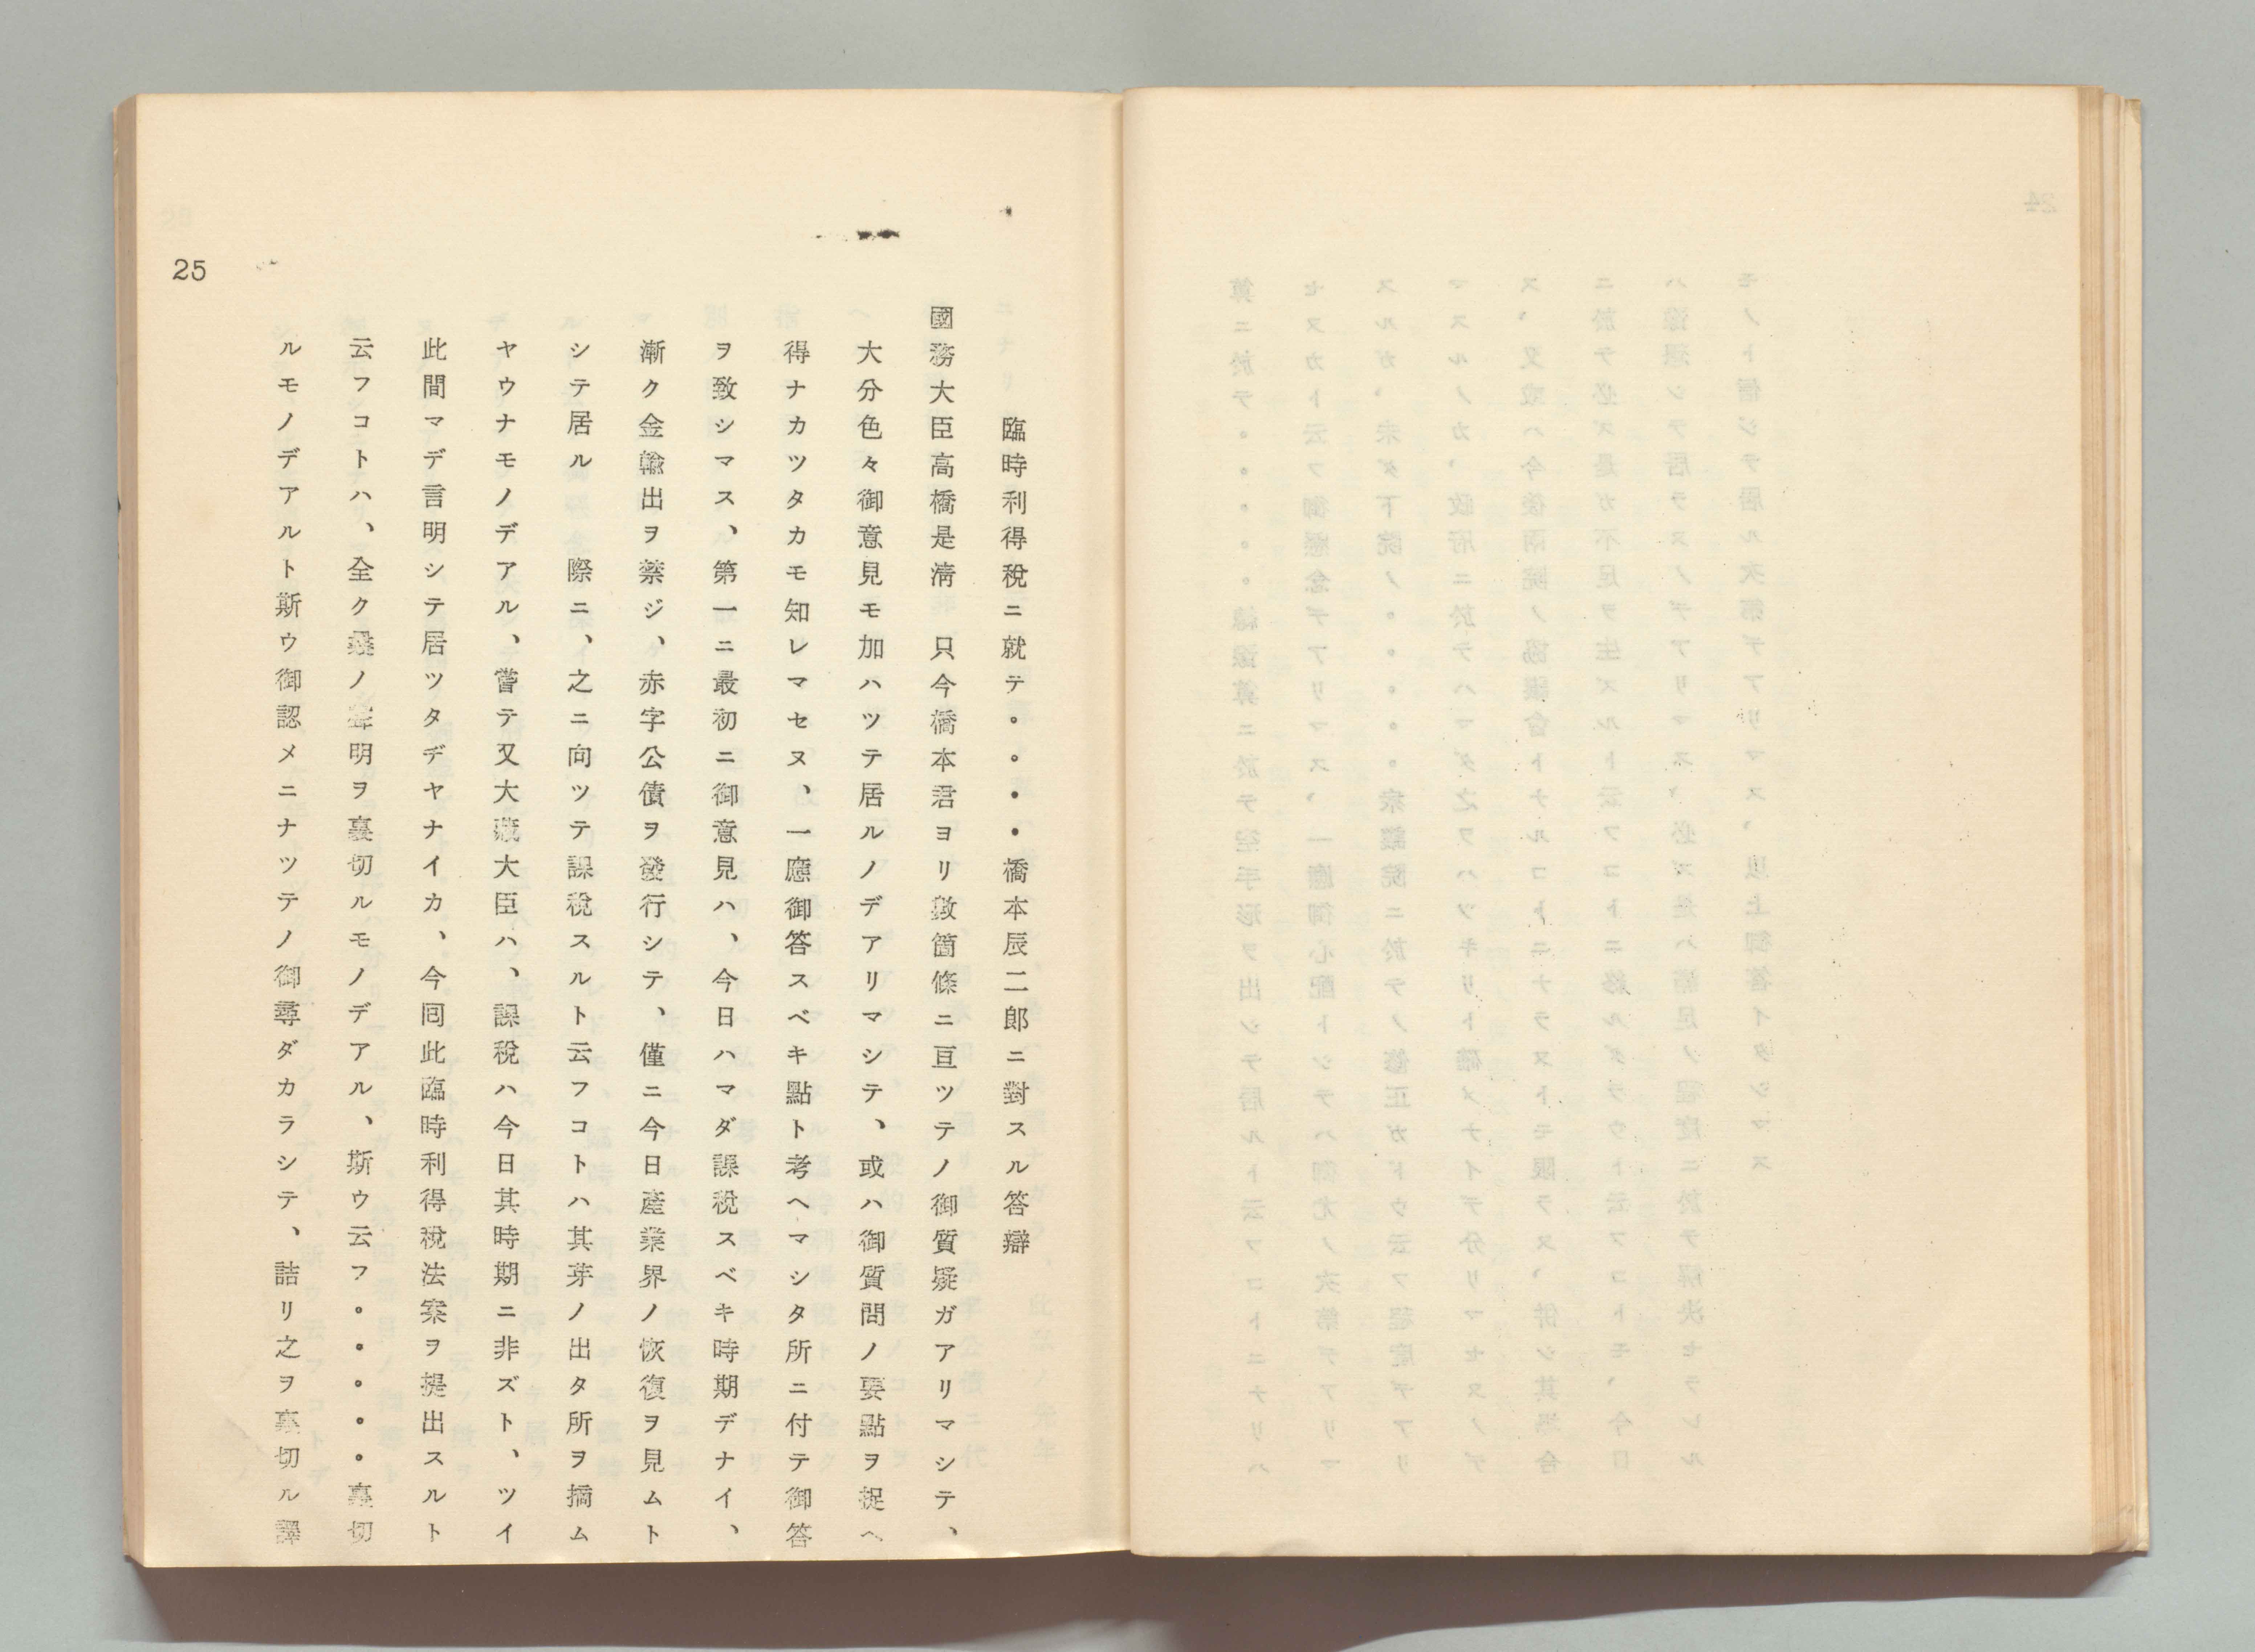 臨時利得稅ニ就テ。。・・橋本辰二郎ニ對スル答辯
國務大臣高橋是淸　只今橋本君ヨリ數箇條ニ亘ツテノ御質疑ガアリマシテ、
大分色々御意見モ加ハツテ居ルノデアリマシテ、或ハ御質問ノ要點ヲ捉ヘ
得ナカツタカモ知レマセヌ、一應御答スベキ點ト考ヘマシタ所ニ付テ御答
ヲ致シマス、第一ニ最初ニ御意見ハ、今日ハマダ課稅スベキ時期デナイ、
漸ク金輸出ヲ禁ジ、赤字公債ヲ發行シテ、僅ニ今日產業界ノ恢復ヲ見ムト
シテ居ル　際ニ、之ニ向ツテ課稅スルト云フコトハ其芽ノ出タ所ヲ摘ム
ヤウナモノデアル、嘗テ又大藏大臣ハ、課稅ハ今日其時期ニ非ズト、ツイ
此間マデ言明シテ居ツタヂヤナイカ、今囘此臨時利得稅法案ヲ提出スルト
云フコトハ、全ク曩ノ聲明ヲ裏切ルモノデアル、斯ウ云フ。。。。。裏切
ルモノデアルト斯ウ御認メニナツテノ御尋ダカラシテ、詰リ之ヲ裏切ル譯
25